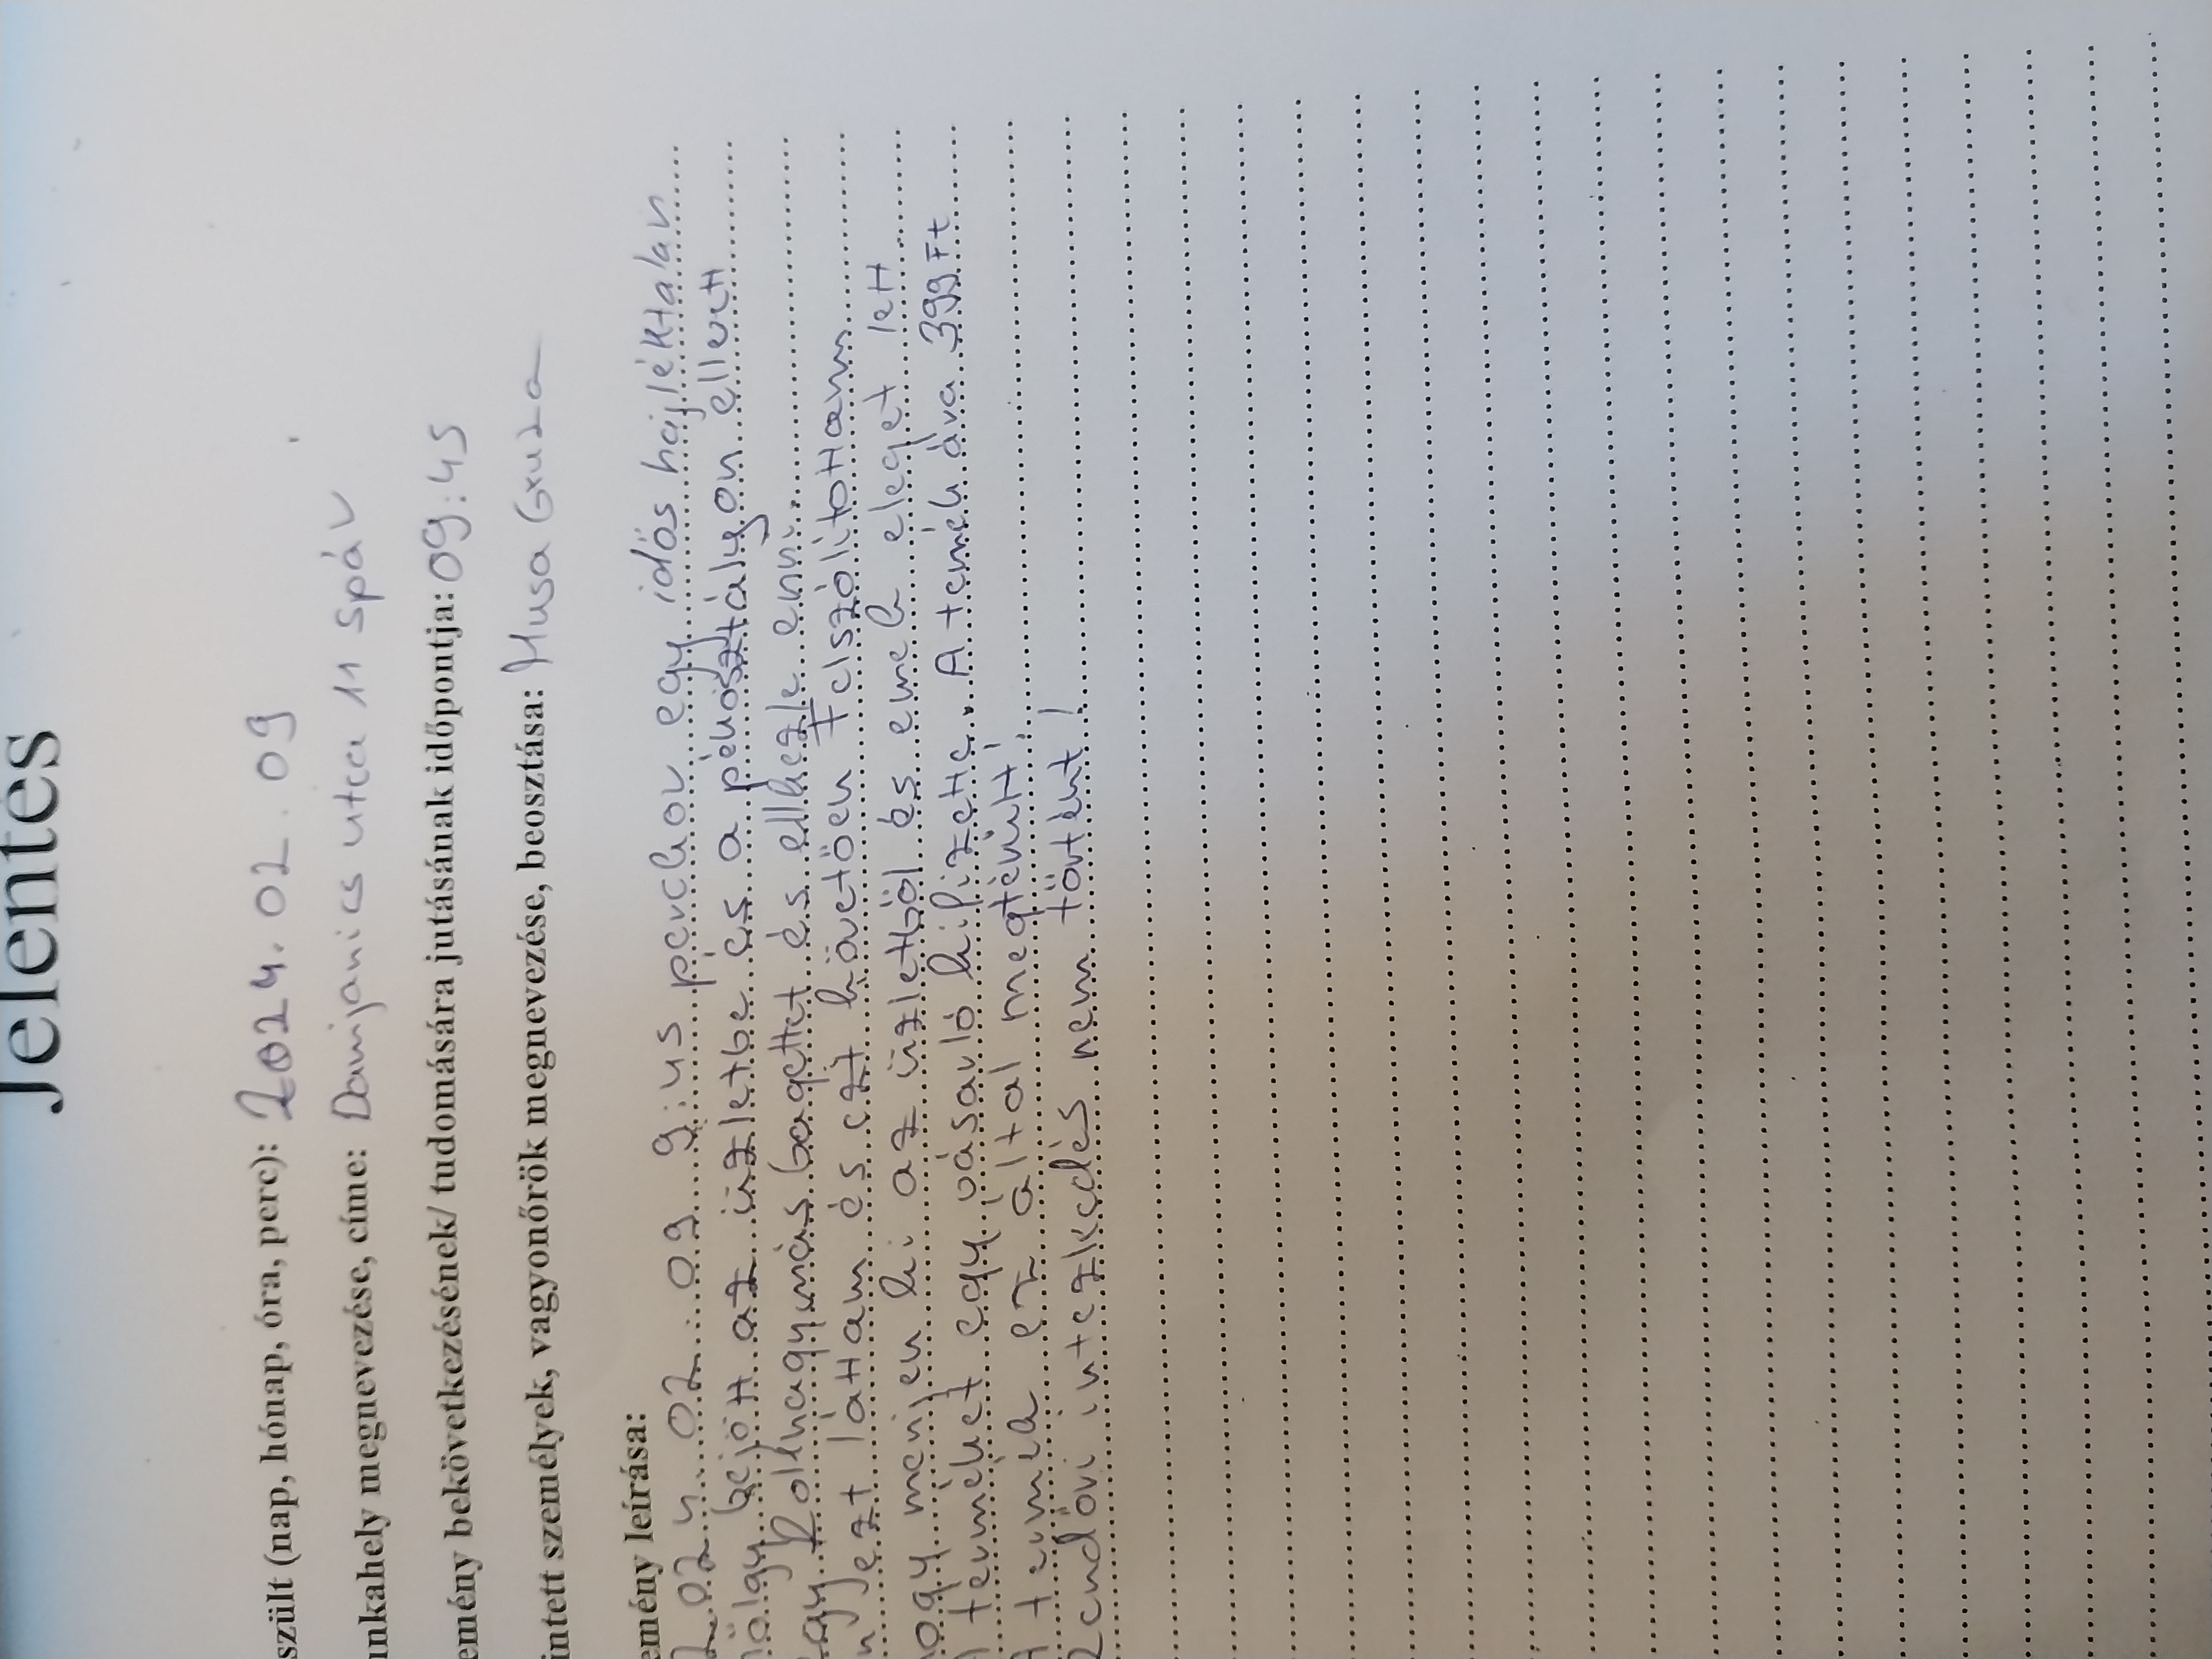 Jelentés
szült (nap, hónap, óra, perc): 2024. 02. 09
unkahely megnevezése, címe: Damjanics utca 11 spáv
emény bekövetkezésének/ tudomására jutásának időpontja: 09:45
intett személyek, vagyonőrök megnevezése, beosztása: Musa Géza
emény leírása:
2024. 02. 09 9:45 perckor egy idős hajléktalan
hölgy bejött az üzletbe és a pénosztályon ellvett
egy Rolhagymás bagettet és elkezdte enni.
én ezt láttam és ezt követően Felszólítottam
hogy menjen ki az üzletből és emek eleget lett
A terméket egy vásárló kifizette. A termék ára 399 Ft
A termék ez által megtérült!
Rendőri intézkedés nem történt!